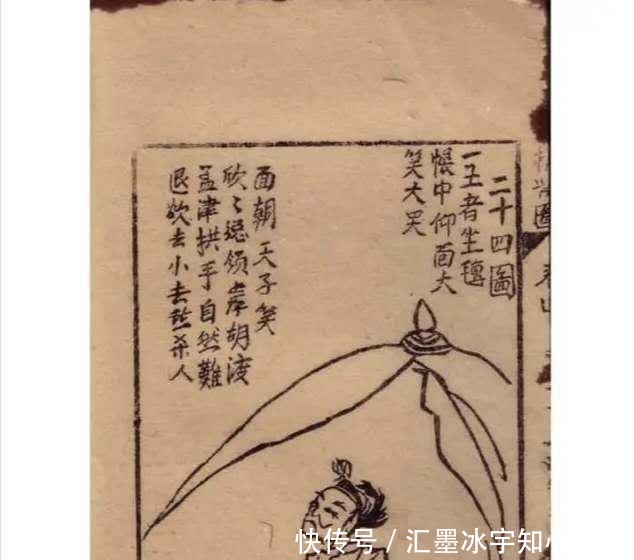 二十四圖
一王者坐氊
帳中仰面大
笑大哭
面朝天子笑
欣〻領胡渡
孟津拱手自然難
退欲去小去愁杀人
快传号 / 汇墨冰宇知